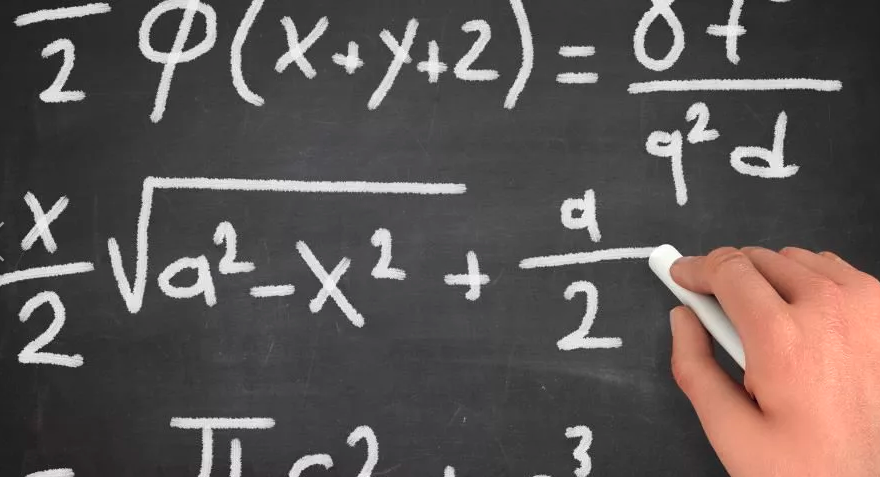 2 φ(x+y+2) = 8t / q² d
x/2 √(a²-x²) + a/2
π